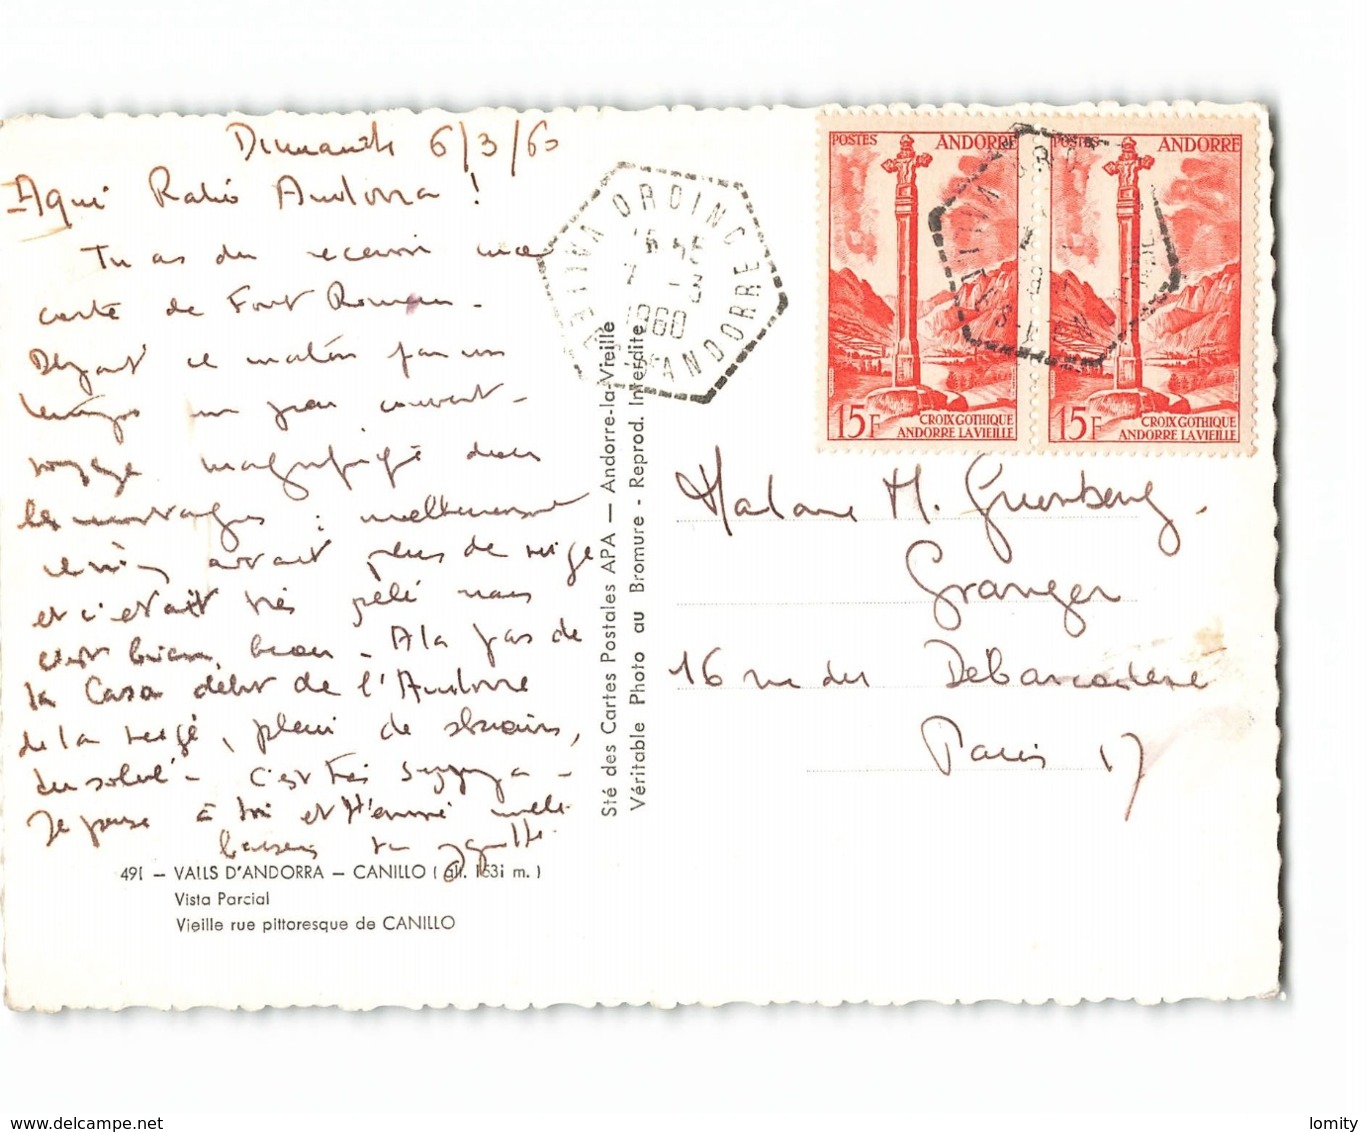 Dimanche 6/3/60
Aqui Radio Andorra !
Tu as du recevoir une
carte de Font Romeu -
Départ ce matin par un
temps un peu couvert -
voyage magnifique dans
les montagnes :
avait plus de neige
et c'était très gelé mais
c'est bien beau - A la pas de
la Casa début de l'Andorre
de la neige, plein de skieurs,
du soleil - c'est très sympa -
Je pense à toi et mille
baisers ta
491 — VALLS D'ANDORRA — CANILLO ( alt. 1531 m. )
Vista Parcial
Vieille rue pittoresque de CANILLO
Sté des Cartes Postales APA — Andorre-la-Vieille
Véritable Photo au Bromure - Reprod. Interdite
VALIRA ORDINO
7 - 3
1960
D'ANDORRE
POSTES ANDORRE
15F
CROIX GOTHIQUE
ANDORRE LA VIEILLE
POSTES ANDORRE
15F
CROIX GOTHIQUE
ANDORRE LA VIEILLE
Madame M. Grunberg
Granger
16 rue du Débarcadère
Paris 17
lomity